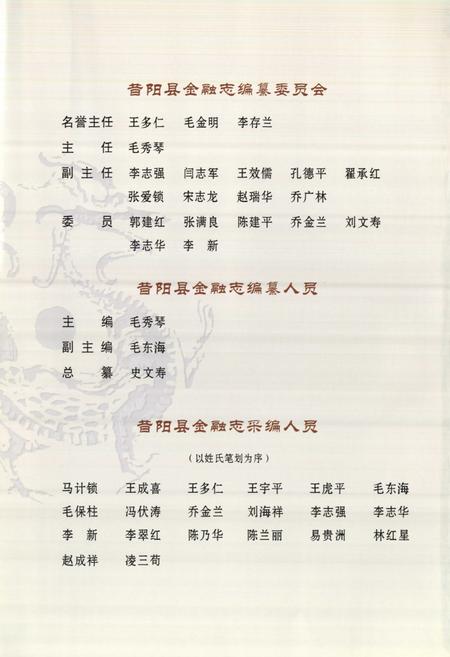 昔阳县金融志编纂委员会
名誉主任 王多仁 毛金明 李存兰
主 任 毛秀琴
副主任 李志强 闫志军 王效儒 孔德平 翟承红
张爱锁 宋志龙 赵瑞华 乔广林
委 员 郭建红 张满良 陈建平 乔金兰 刘文寿
李志华 李 新
昔阳县金融志编纂人员
主 编 毛秀琴
副主编 毛东海
总 纂 史文寿
昔阳县金融志采编人员
（以姓氏笔划为序）
马计锁 王成喜 王多仁 王宇平 王虎平 毛东海
毛保柱 冯伏涛 乔金兰 刘海祥 李志强 李志华
李 新 李翠红 陈乃华 陈兰丽 易贵洲 林红星
赵成祥 凌三苟